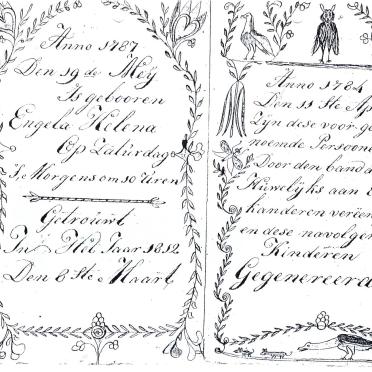 Anno 1787
Den 19 de Meÿ
Is gebooren
Engela Helena
Op Zaturdag
's Morgens om 10 Uren
Getrouwt
In Het Jaar 1812
Den 8 ste Maart
Anno 1784
Den 11 ste Ap
Zijn dese voor ge
noemde Persoone
Door den band d
Huwelijks aan E
kanderen vereen
en dese navolgen
Kinderen
Gegenereerd